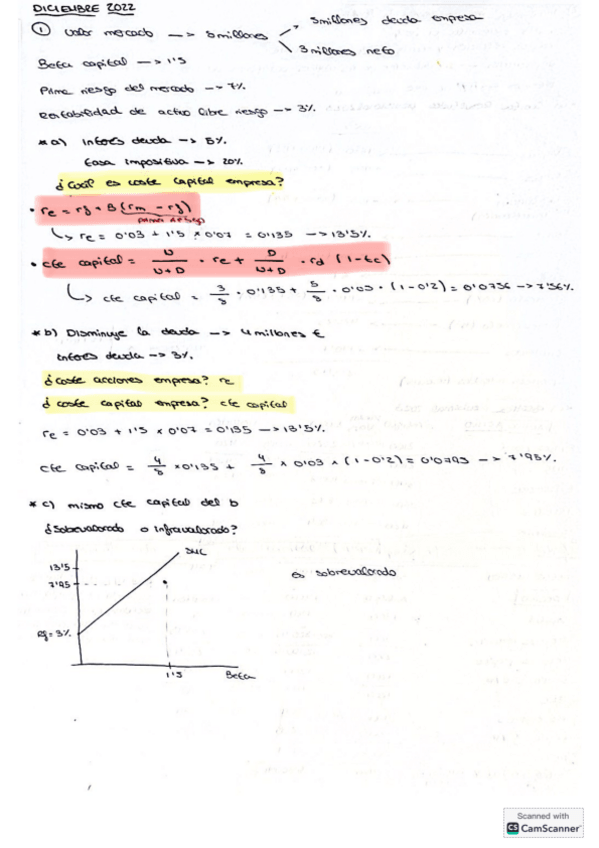 DICIEMBRE 2022
① Valor mercado —> 8 millones
5 millones deuda empresa
3 millones neto
Beta capital —> 1'5
Prima riesgo del mercado —> 7%
Rentabilidad de activo libre riesgo —> 3%
* a) Interés deuda —> 5%
tasa impositiva —> 20%
¿Cuál es coste capital empresa?
• re = rf + B (rm - rf)
prima riesgo
↳ re = 0'03 + 1'5 × 0'07 = 0'135 —> 13'5%
• cte capital = U/U+D · re + D/U+D · rd (1-tc)
↳ cte capital = 3/8 · 0'135 + 5/8 · 0'05 · (1-0'2) = 0'0756 —> 7'56%
* b) Disminuye la deuda —> 4 millones €
interés deuda —> 3%
¿coste acciones empresa? re
¿coste capital empresa? cte capital
re = 0'03 + 1'5 × 0'07 = 0'135 —> 13'5%
cte capital = 4/8 × 0'135 + 4/8 × 0'03 × (1-0'2) = 0'0795 —> 7'95%
* c) mismo cte capital del b
¿Sobrevalorado o infravalorado?
SML
13'5
7'95
es sobrevalorado
Rf = 3%
1'5
Beta
Scanned with
CS CamScanner